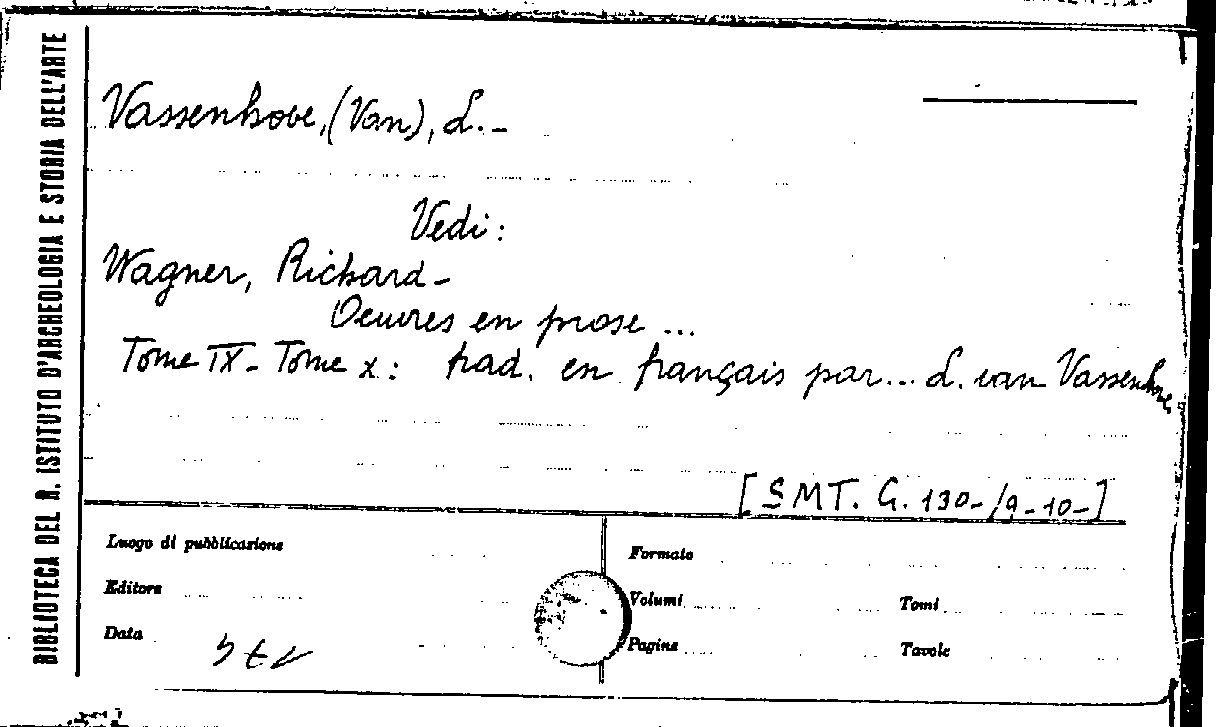 BIBLIOTECA DEL R. ISTITUTO D'ARCHEOLOGIA E STORIA DELL'ARTE
Vassenhove, (Van), L. -
Vedi:
Wagner, Richard -
Oeuvres en prose ...
Tome IX - Tome X: trad. en français par... L. van Vassenhove
[SMT. G. 130-/9-10-]
Luogo di pubblicazione
Formato
Editore
Volumi
Tomi
Data
Pagine
Tavole